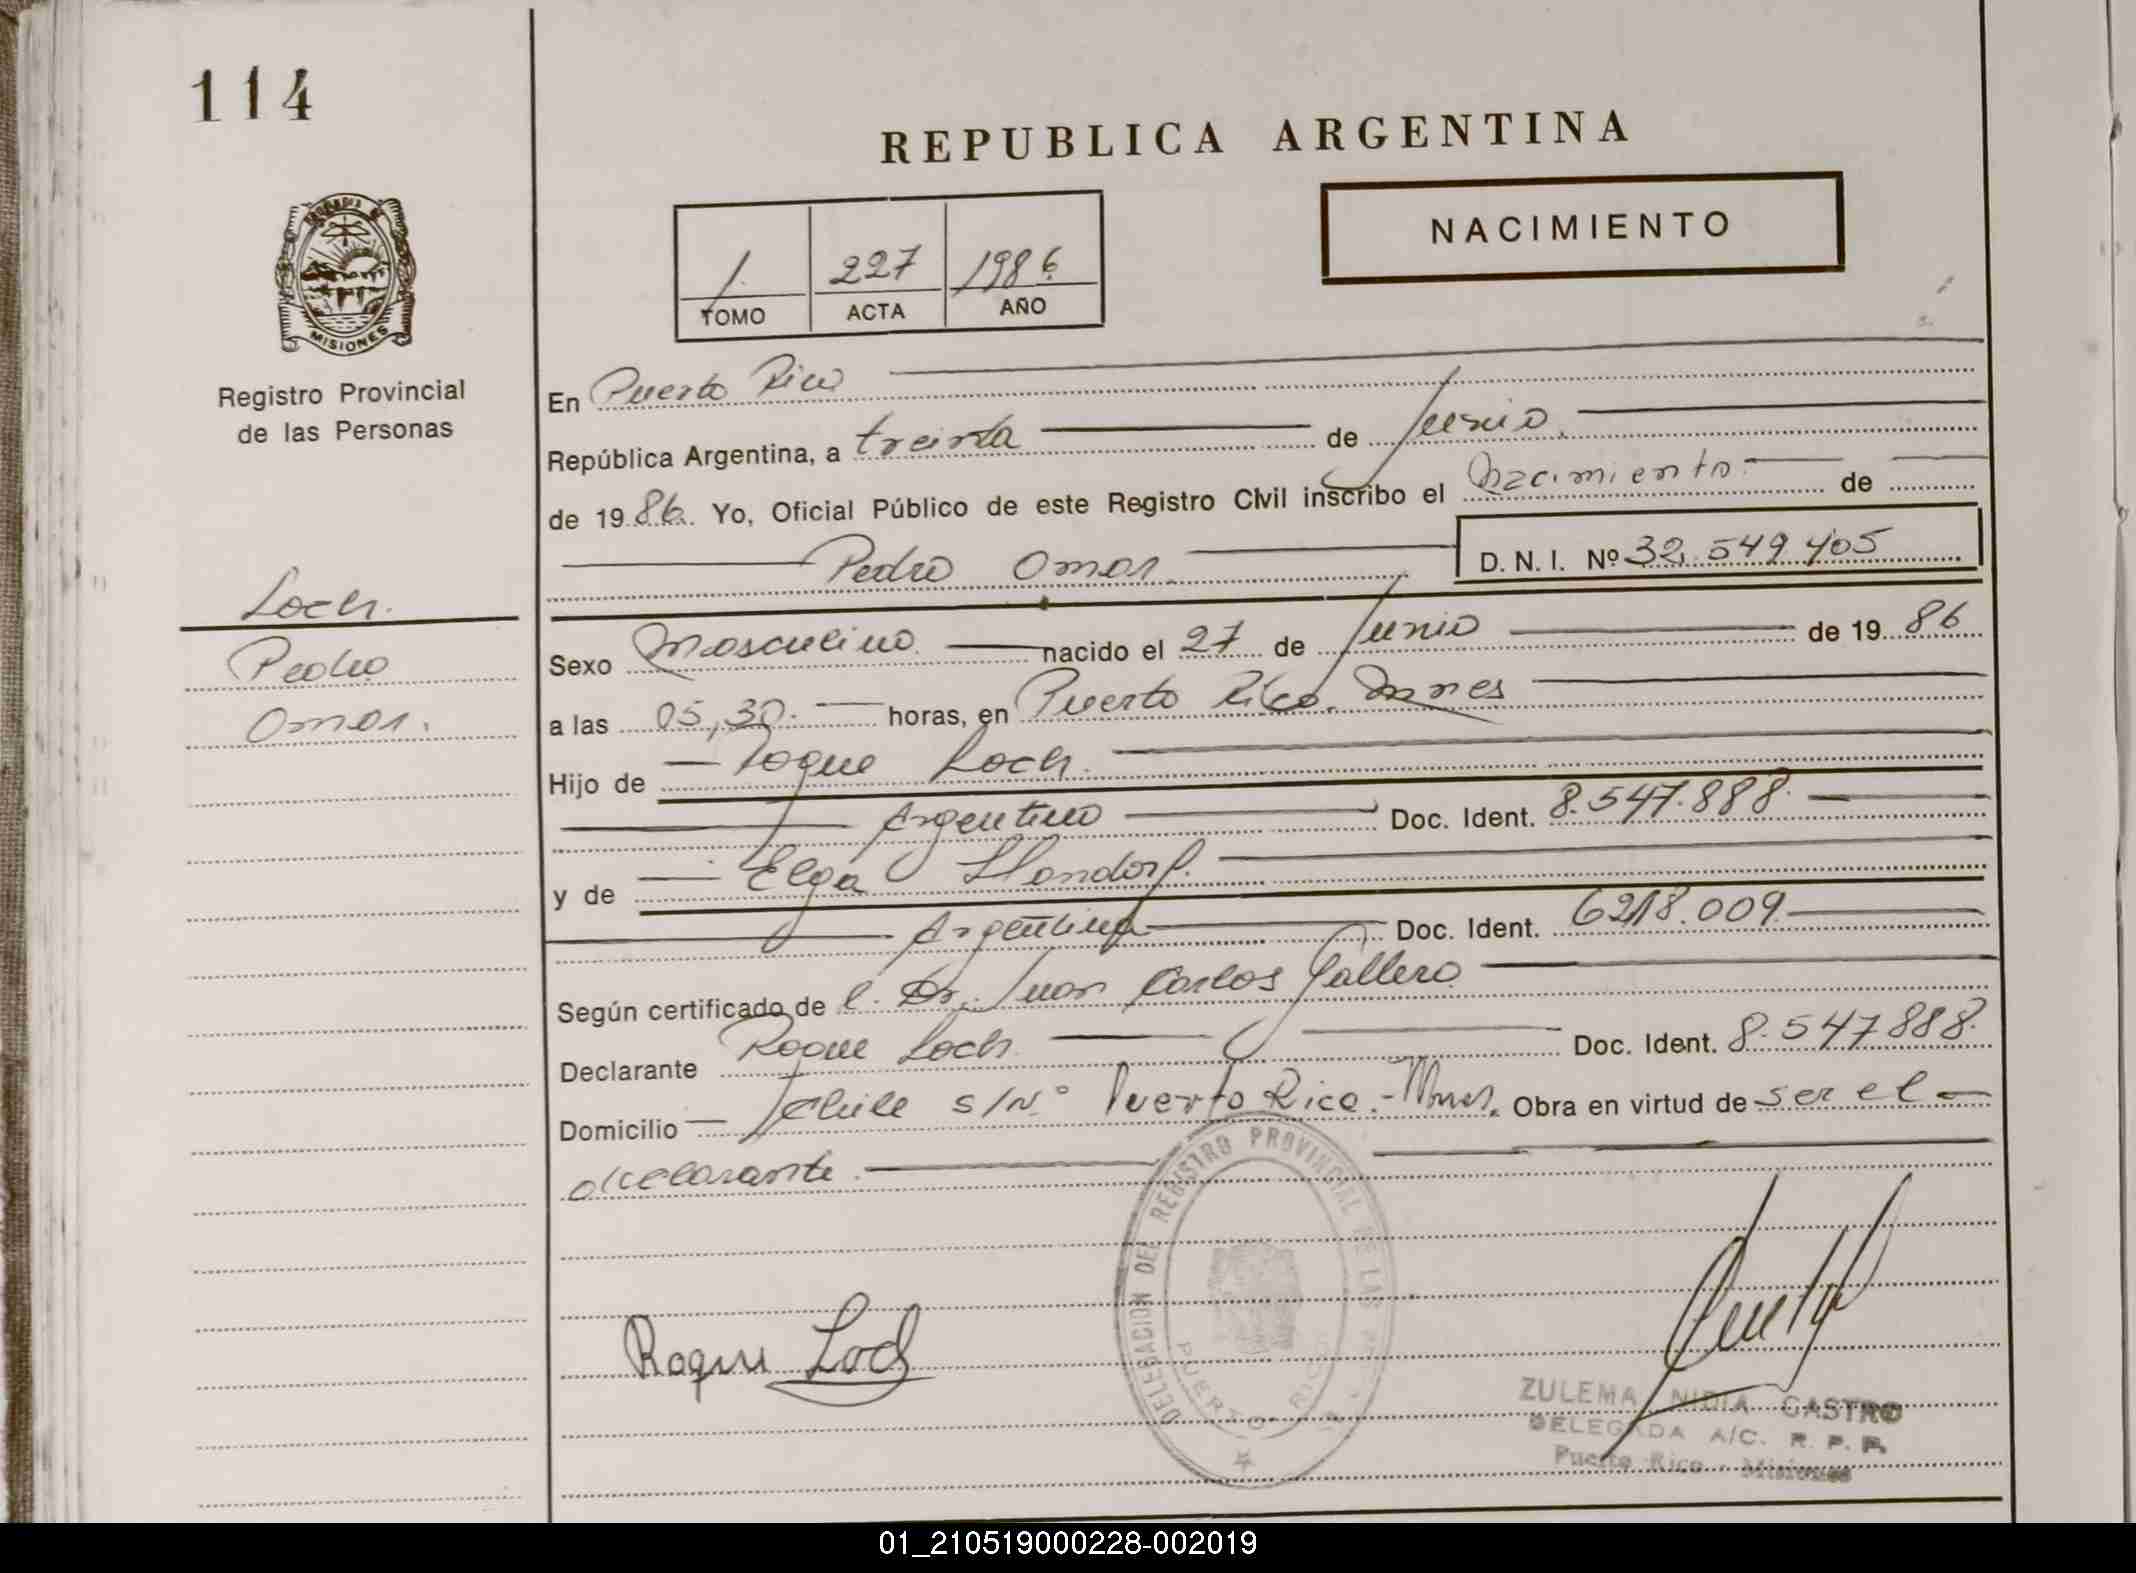 114
REPUBLICA ARGENTINA
NACIMIENTO
1. 227 1986
TOMO ACTA AÑO
PROVINCIA DE
MISIONES
Registro Provincial
de las Personas
En Puerto Rico
República Argentina, a treinta de Junio.
de 1986. Yo, Oficial Público de este Registro Civil inscribo el Nacimiento. de
Pedro Omar D. N. I. Nº 32.549.405
Loch.
Pedro
Omar.
Sexo Masculino nacido el 27 de Junio de 1986
a las 05,30. horas, en Puerto Rico. Mnes
Hijo de Roque Loch.
Argentino Doc. Ident. 8.547.888.
y de Elga Handorf.
Argentina Doc. Ident. 6218.009.
Según certificado de l. Dr. Juan Carlos Gallero
Declarante Roque Loch. Doc. Ident. 8.547888.
Domicilio Chile S/N.° Puerto Rico.-Mnes. Obra en virtud de ser el
declarante.
DELEGACION DEL REGISTRO PROVINCIAL DE LAS
PUERTO RICO
Roque Loch
ZULEMA NIDIA CASTRO
DELEGADA A/C. R. P. P.
Puerto Rico - Misiones
01_210519000228-002019